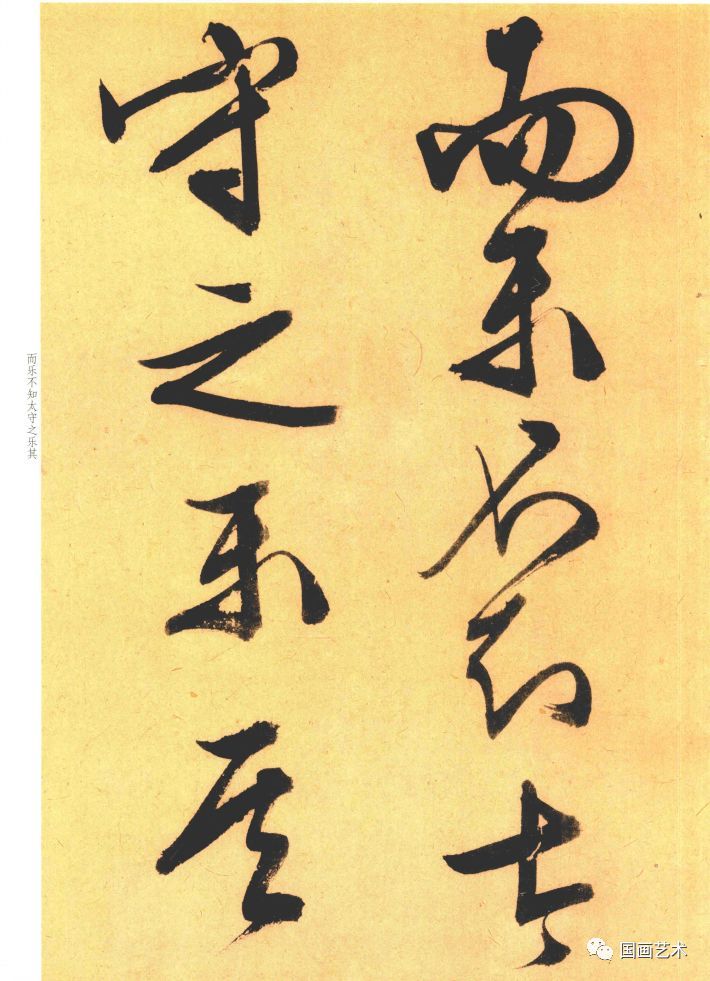 而乐不知太
守之乐其
而乐不知太守之乐其
国画艺术